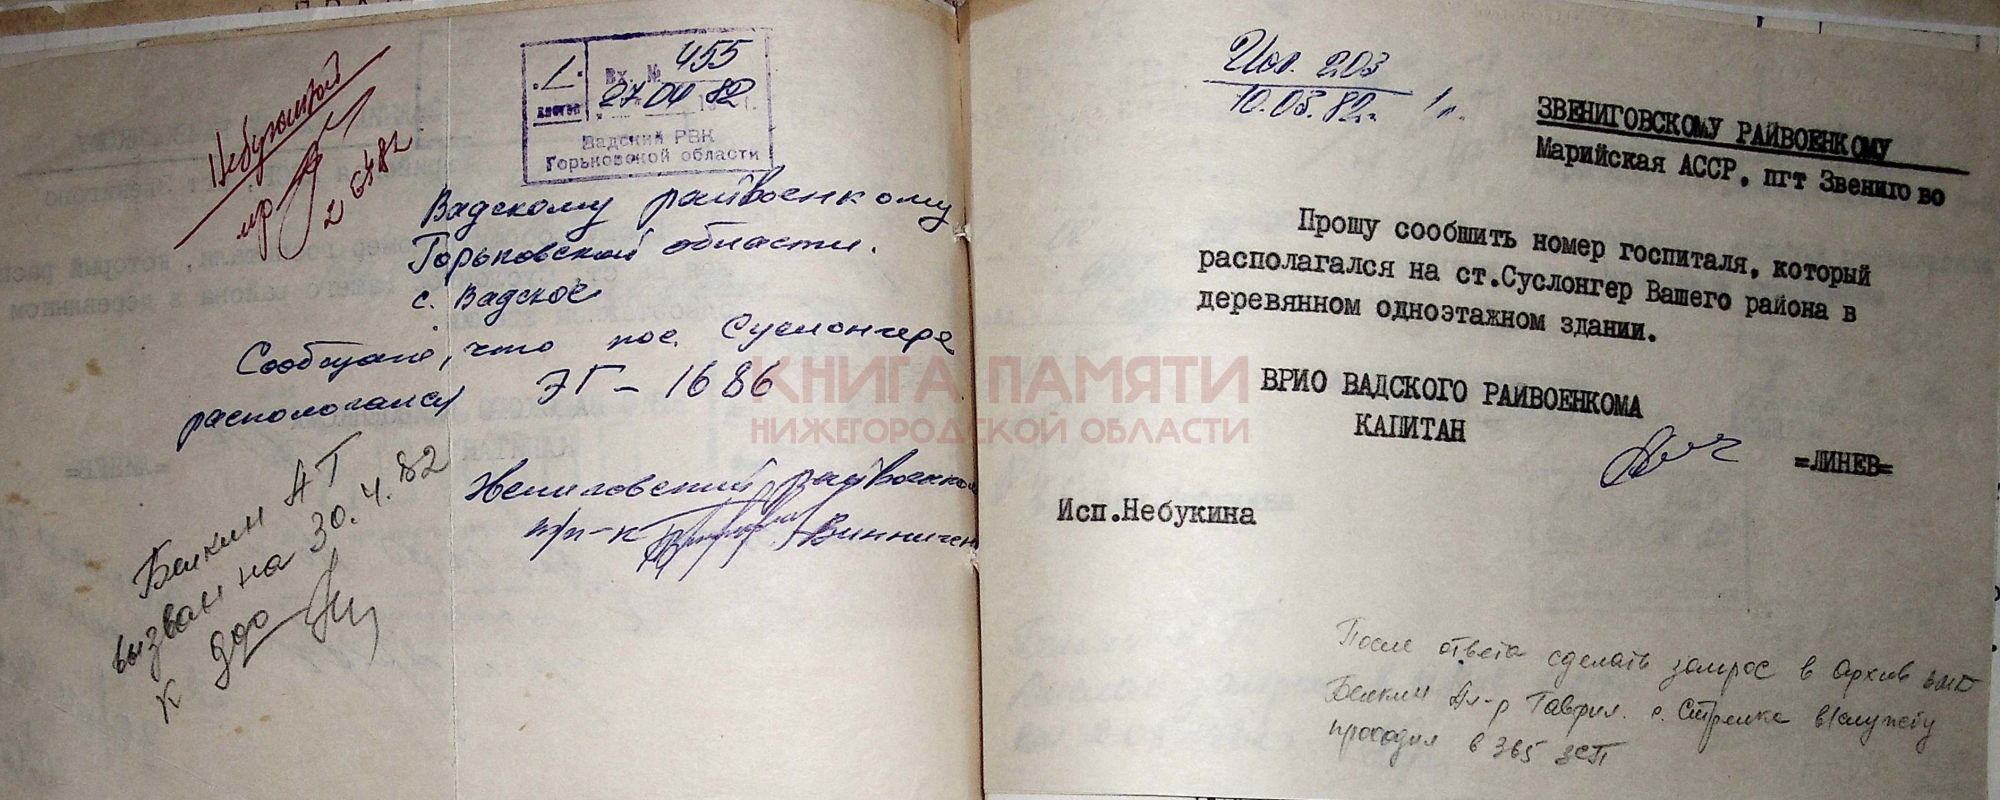 Небукиной
26.4.82
.1.
листов
Вх. № 455
27 04 1982г.
Вадский РВК
Горьковской области
Вадскому райвоенкому
Горьковской области.
с. Вадское
Сообщаю, что пос. Суслонгере
распологался ЭГ-1686
Звениговский райвоенком
п/п-к Винничен
Белкин АТ
вызван на 30.4.82
к
КНИГА ПАМЯТИ
НИЖЕГОРОДСКОЙ ОБЛАСТИ
Исх. 203
10.03.82г. 1л.
ЗВЕНИГОВСКОМУ РАЙВОЕНКОМУ
Марийская АССР, пгт Звенигово
Прошу сообщить номер госпиталя, который
располагался на ст.Суслонгер Вашего района в
деревянном одноэтажном здании.
ВРИО ВАДСКОГО РАЙВОЕНКОМА
КАПИТАН
=ЛИНЕВ=
Исп.Небукина
После ответа сделать запрос в архив ВМБ
Белкин Ал-р Гаврил. с. Стрелка в/службу
проходил в 365 ЗСП